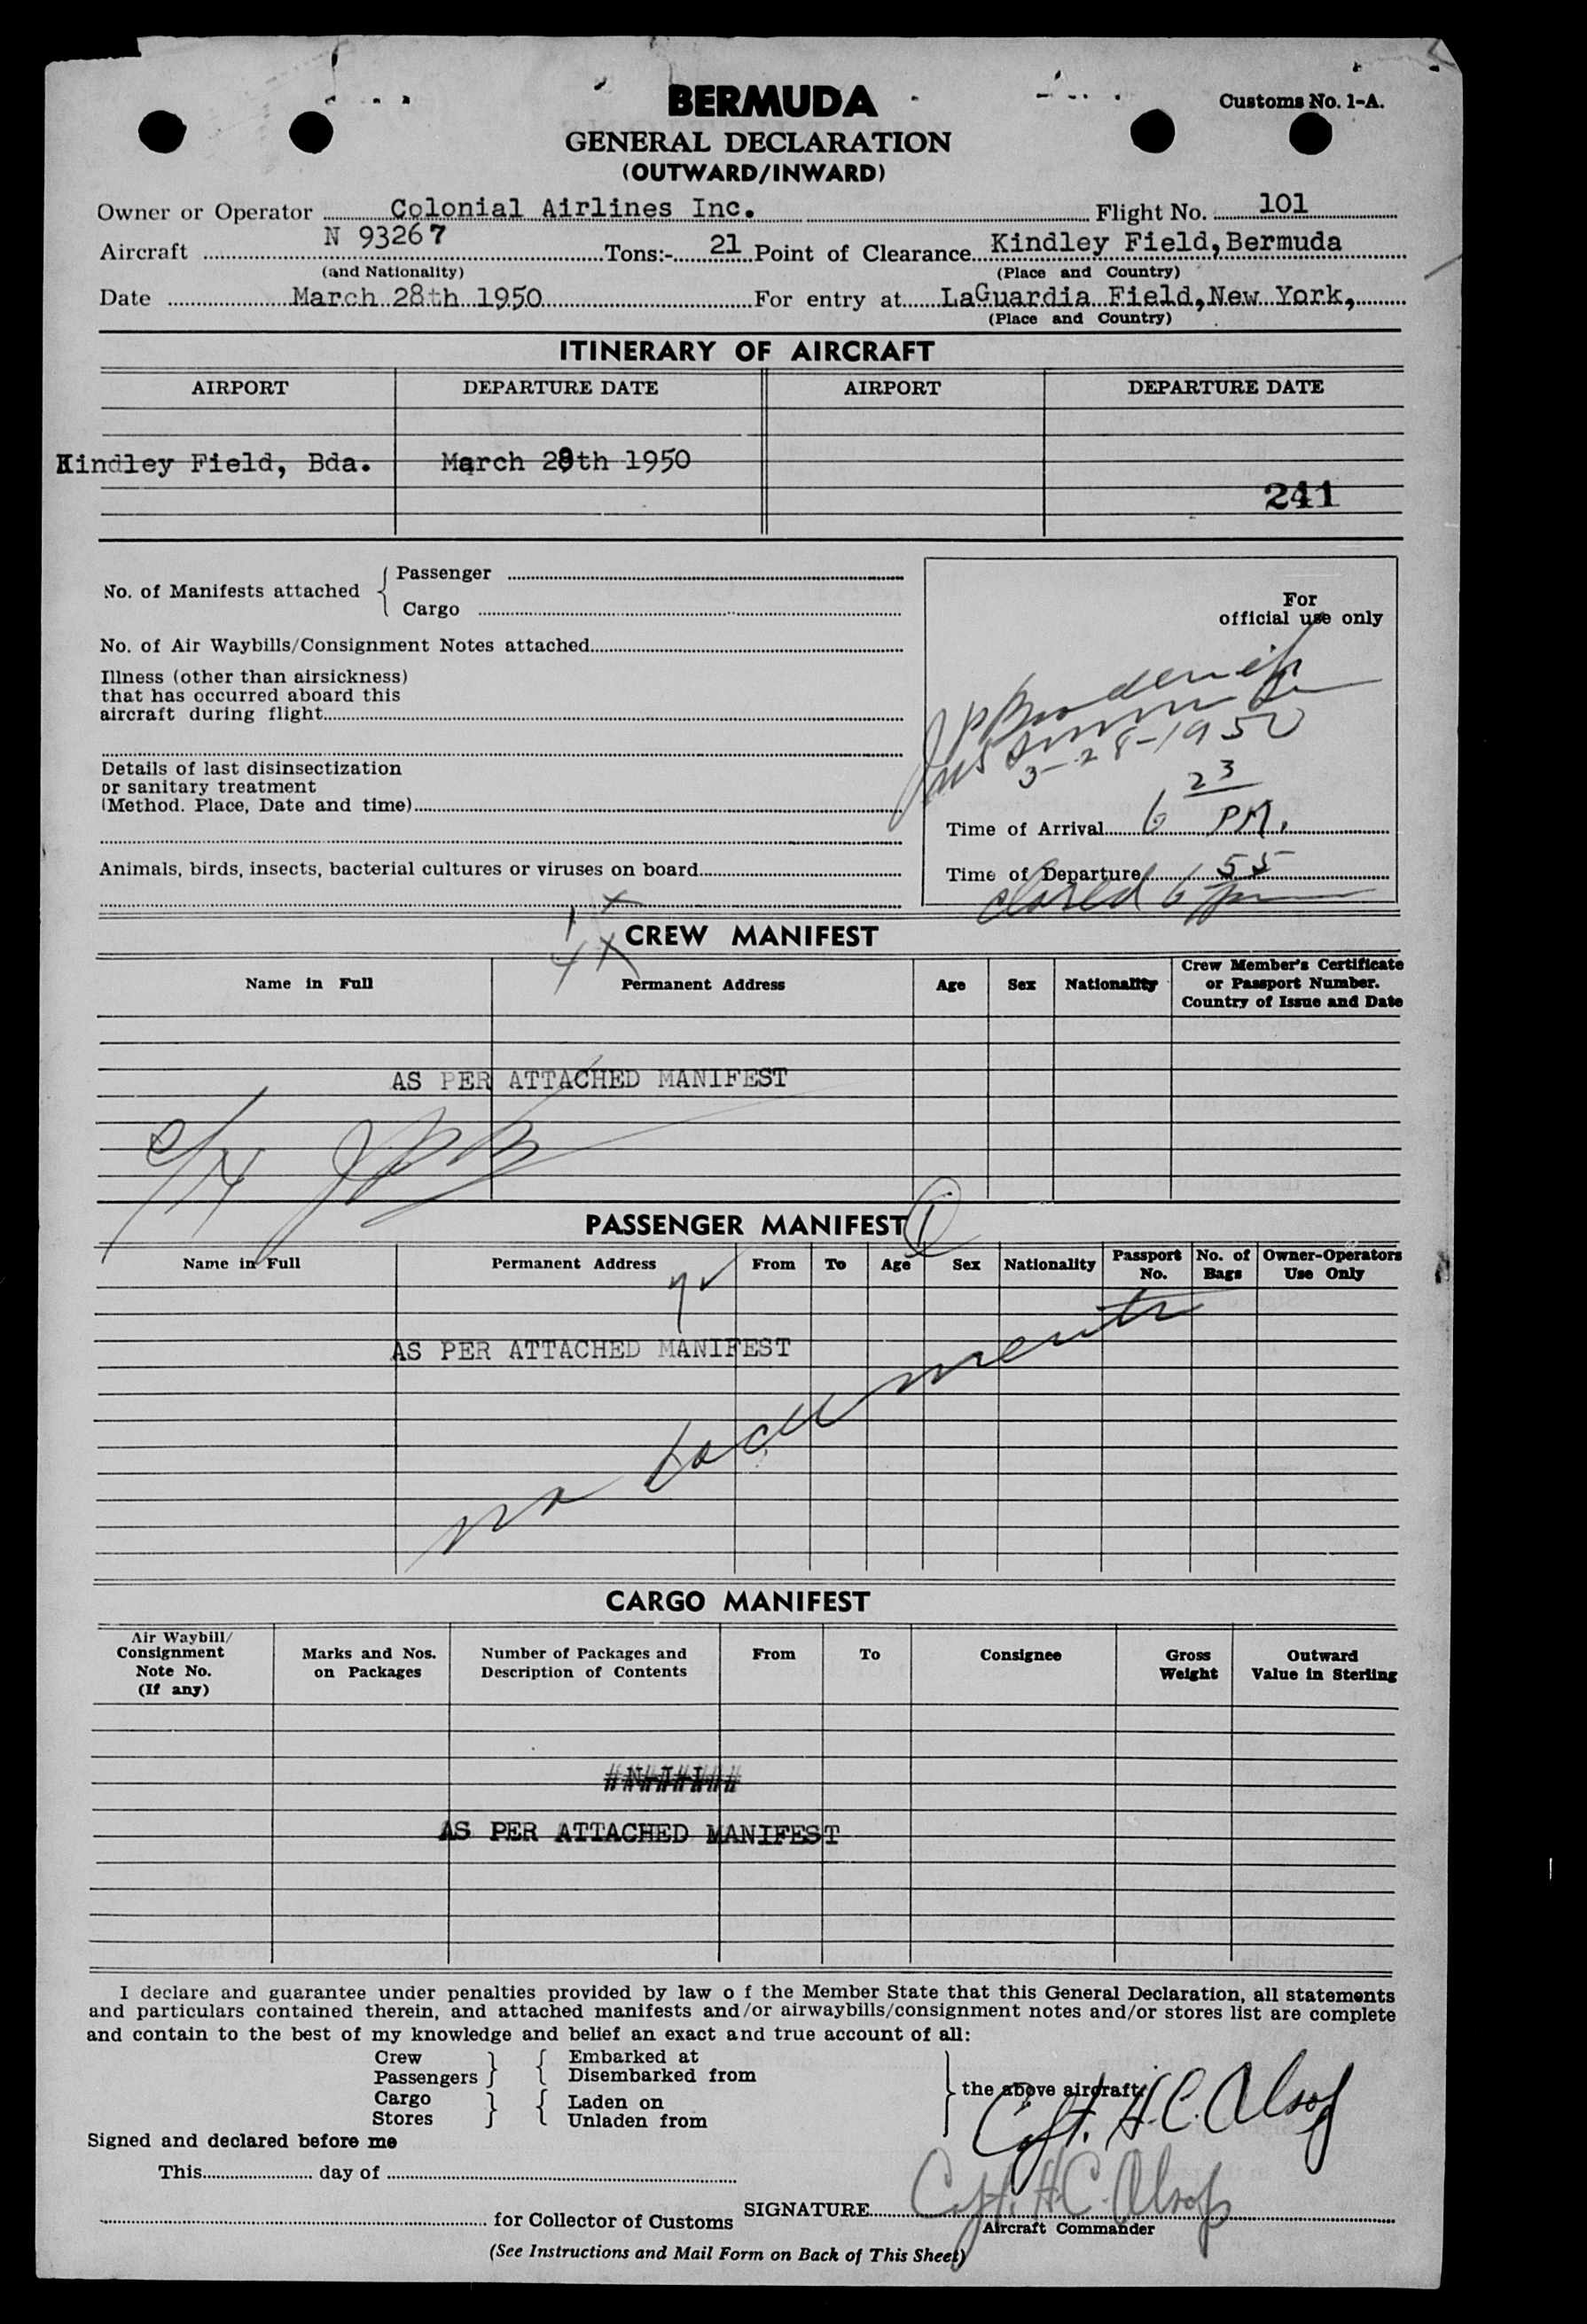 BERMUDA
Customs No. 1-A.
GENERAL DECLARATION
(OUTWARD/INWARD)
Owner or Operator Colonial Airlines Inc. Flight No. 101
Aircraft N 93267 Tons:- 21 Point of Clearance Kindley Field, Bermuda
(and Nationality) (Place and Country)
Date March 28th 1950 For entry at LaGuardia Field, New York,
(Place and Country)
ITINERARY OF AIRCRAFT
AIRPORT DEPARTURE DATE AIRPORT DEPARTURE DATE
Kindley Field, Bda. March 28th 1950
241
No. of Manifests attached { Passenger
Cargo
No. of Air Waybills/Consignment Notes attached
Illness (other than airsickness)
that has occurred aboard this
aircraft during flight
Details of last disinsectization
or sanitary treatment
(Method. Place, Date and time)
Animals, birds, insects, bacterial cultures or viruses on board
For
official use only
J P Broderick
3-28-1950
Time of Arrival 6 23 PM.
Time of Departure 55
closed 6 pm
CREW MANIFEST
Name in Full Permanent Address Age Sex Nationality Crew Member's Certificate or Passport Number. Country of Issue and Date
AS PER ATTACHED MANIFEST
JPB
PASSENGER MANIFEST 1
Name in Full Permanent Address From To Age Sex Nationality Passport No. No. of Bags Owner-Operators Use Only
AS PER ATTACHED MANIFEST
no documents
CARGO MANIFEST
Air Waybill/ Consignment Note No. (If any) Marks and Nos. on Packages Number of Packages and Description of Contents From To Consignee Gross Weight Outward Value in Sterling
AS PER ATTACHED MANIFEST
I declare and guarantee under penalties provided by law o f the Member State that this General Declaration, all statements
and particulars contained therein, and attached manifests and/or airwaybills/consignment notes and/or stores list are complete
and contain to the best of my knowledge and belief an exact and true account of all:
Crew Embarked at
Passengers Disembarked from
the above aircraft.
Cargo Laden on
Stores Unladen from
Capt. H.C. Alsop
Signed and declared before me
This day of
for Collector of Customs SIGNATURE Capt. H.C. Alsop
Aircraft Commander
(See Instructions and Mail Form on Back of This Sheet)